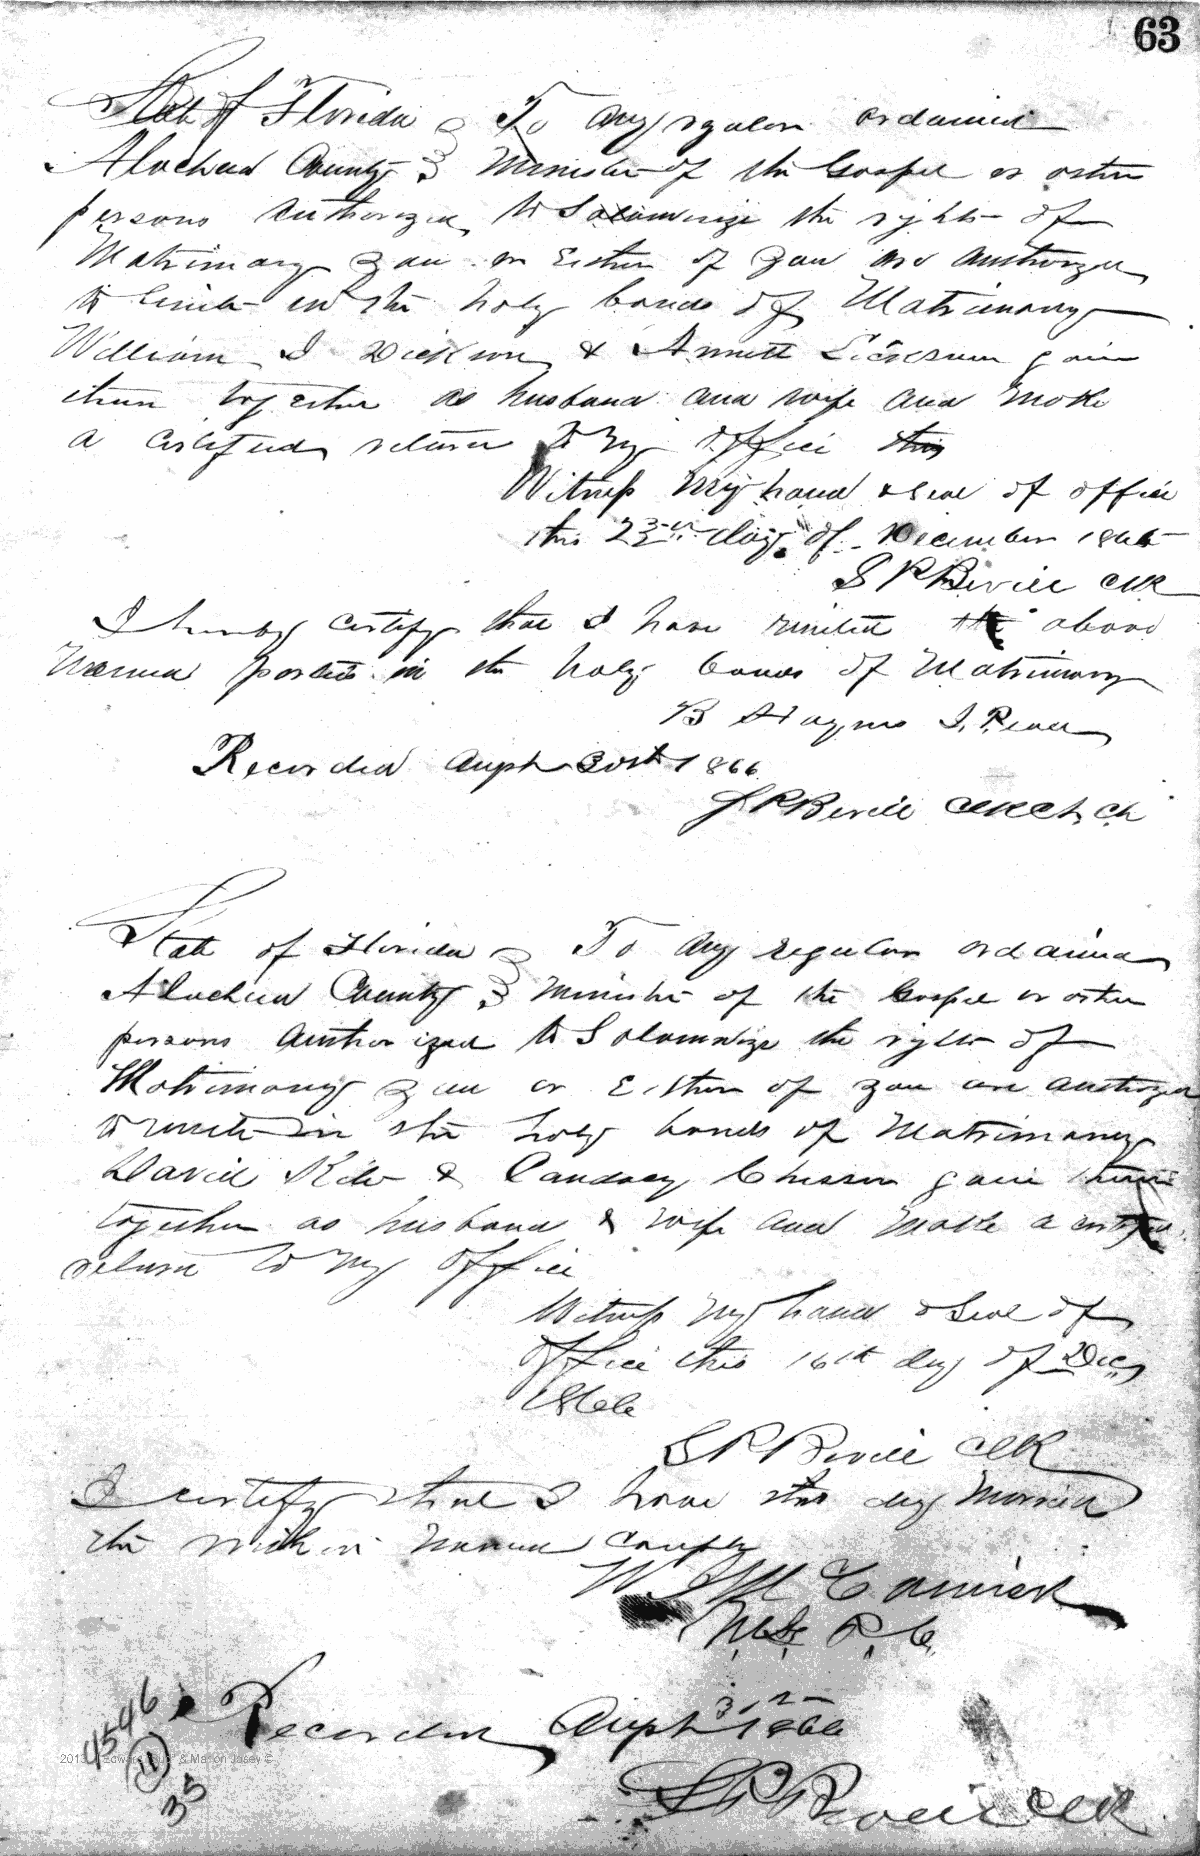 63
State of Florida } To any regular ordained
Alachua County } Minister of the Gospel or other
persons authorized to Solumnize the rights of
Matrimony you or Either of you are authorized
to Unite in the holy bonds of Matrimony
William J Dickson & Annett join
them together as husband and wife and make
a certified return to my office this
Witness my hand & Seal of office
this 23rd day of December 1865
S P Bevill Clk
I hereby certify that I have united the above
named parties in the holy bonds of Matrimony
B
Recorded 30th 1866
S P Bevill Clk
State of Florida } To any regular ordained
Alachua County } Minister of the Gospel or other
persons authorized to Solumnize the rights of
Matrimony you or Either of you are authorized
to unite in the holy bonds of Matrimony
David & Candacy Chesser join them
together as husband & wife and make a certified
return to my office
Witness my hand & Seal of
office this 16th day of Dec
1866
S P Bevill Clk
I certify that I have this day Married
the within named Couple
W. McCormick
Recorded 31st 1866
S P Bevill Clk
4546
11
35